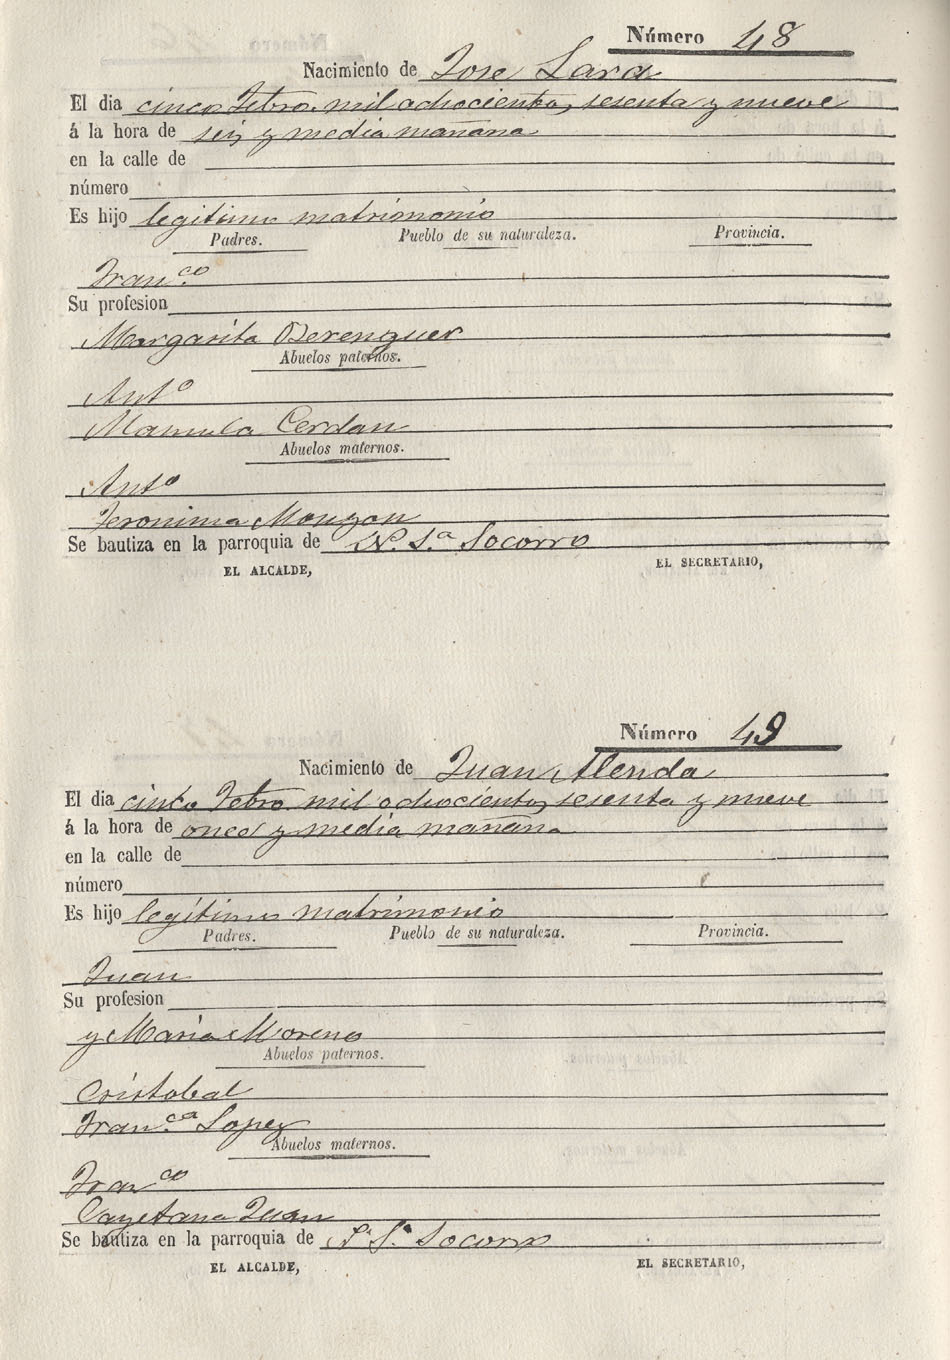 Número 48
Nacimiento de Jose Lara
El dia cinco Febro. mil ochocientos, sesenta y nueve
á la hora de seis y media mañana
en la calle de
número
Es hijo legitimo matrimonio
Padres. Pueblo de su naturaleza. Provincia.
Franco.
Su profesion
Margarita Berenguer
Abuelos paternos.
Anto
Manuela Cerdan
Abuelos maternos.
Anto
Jeronima Monzon
Se bautiza en la parroquia de N. Sa Socorro
EL ALCALDE, EL SECRETARIO,
Número 49
Nacimiento de Juan Alenda
El dia cinco Febro mil ochocientos, sesenta y nueve
á la hora de once y media mañana
en la calle de
número
Es hijo legítimo matrimonio
Padres. Pueblo de su naturaleza. Provincia.
Juan
Su profesion
y Maria Moreno
Abuelos paternos.
Cristobal
Fran.ca Lopez
Abuelos maternos.
Franco
Cayetana Juan
Se bautiza en la parroquia de N. Sa Socorro
EL ALCALDE, EL SECRETARIO,